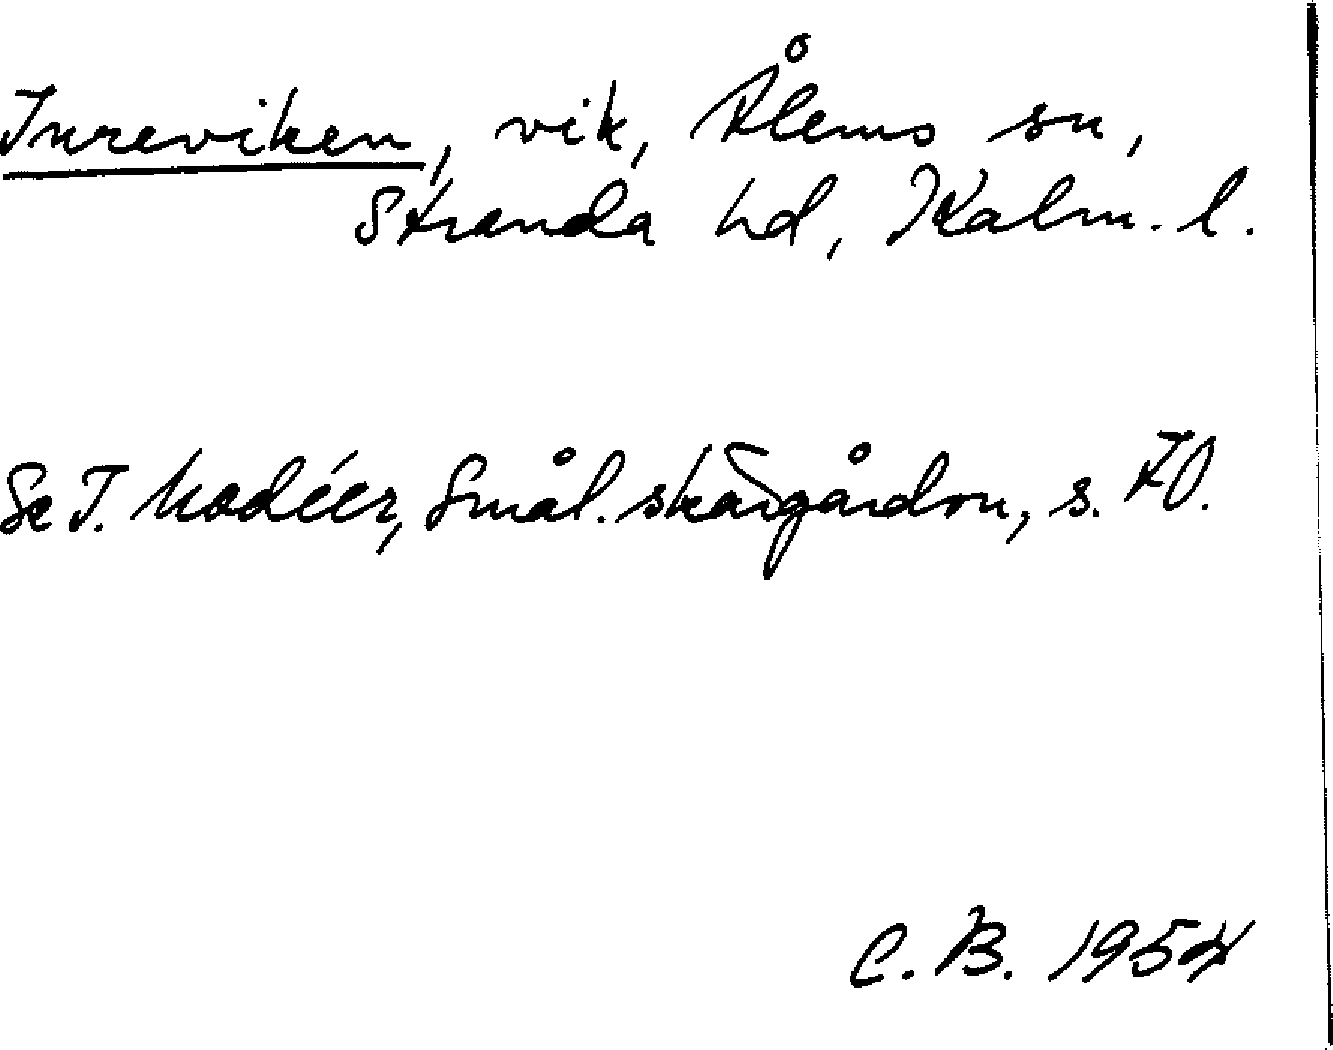 Inreviken, vik, Ålems sn,
Stranda hd, Kalm. l.
Se I. Modéer, Smål. skärgårdsn, s. 70.
C. B. 1954